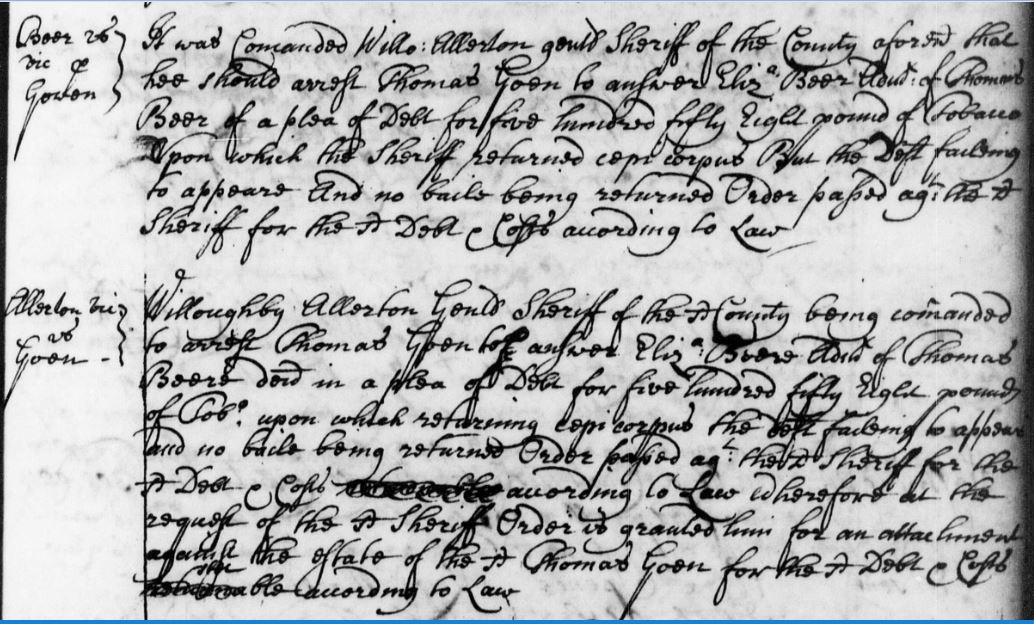 Beer vs
vic p
Gowen
It was Comanded Willo: Allerton gentl Sheriff of the County aforesd that
hee should arrest Thomas Goen to answer Eliza. Beer Admx: of Thomas
Beer of a plea of Debt for five hundred fifty Eight pound of Tobacco
Upon which the Sheriff returned cepi corpus But the Deft faileing
to appeare And no baile being returned Order passed agt: the sd
Sheriff for the sd Debt & Costs acording to Law
Allerton vic
vs
Goen -
Willoughby Allerton Gentl Sheriff of the sd County being comanded
to arrest Thomas Goen to answer Eliza: Beere Admx of Thomas
Beere decd in a plea of Debt for five hundred fifty Eight pounds
of Tobo. upon which returning cepi corpus the deft faileing to appeare
and no baile being returned Order passed agt: the sd Sheriff for the
sd Debt & Costs acording to Law Wherefore at the
request of the sd Sheriff Order is granted him for an attachment
against the estate of the sd Thomas Goen for the sd Debt & Costs
acording to Law